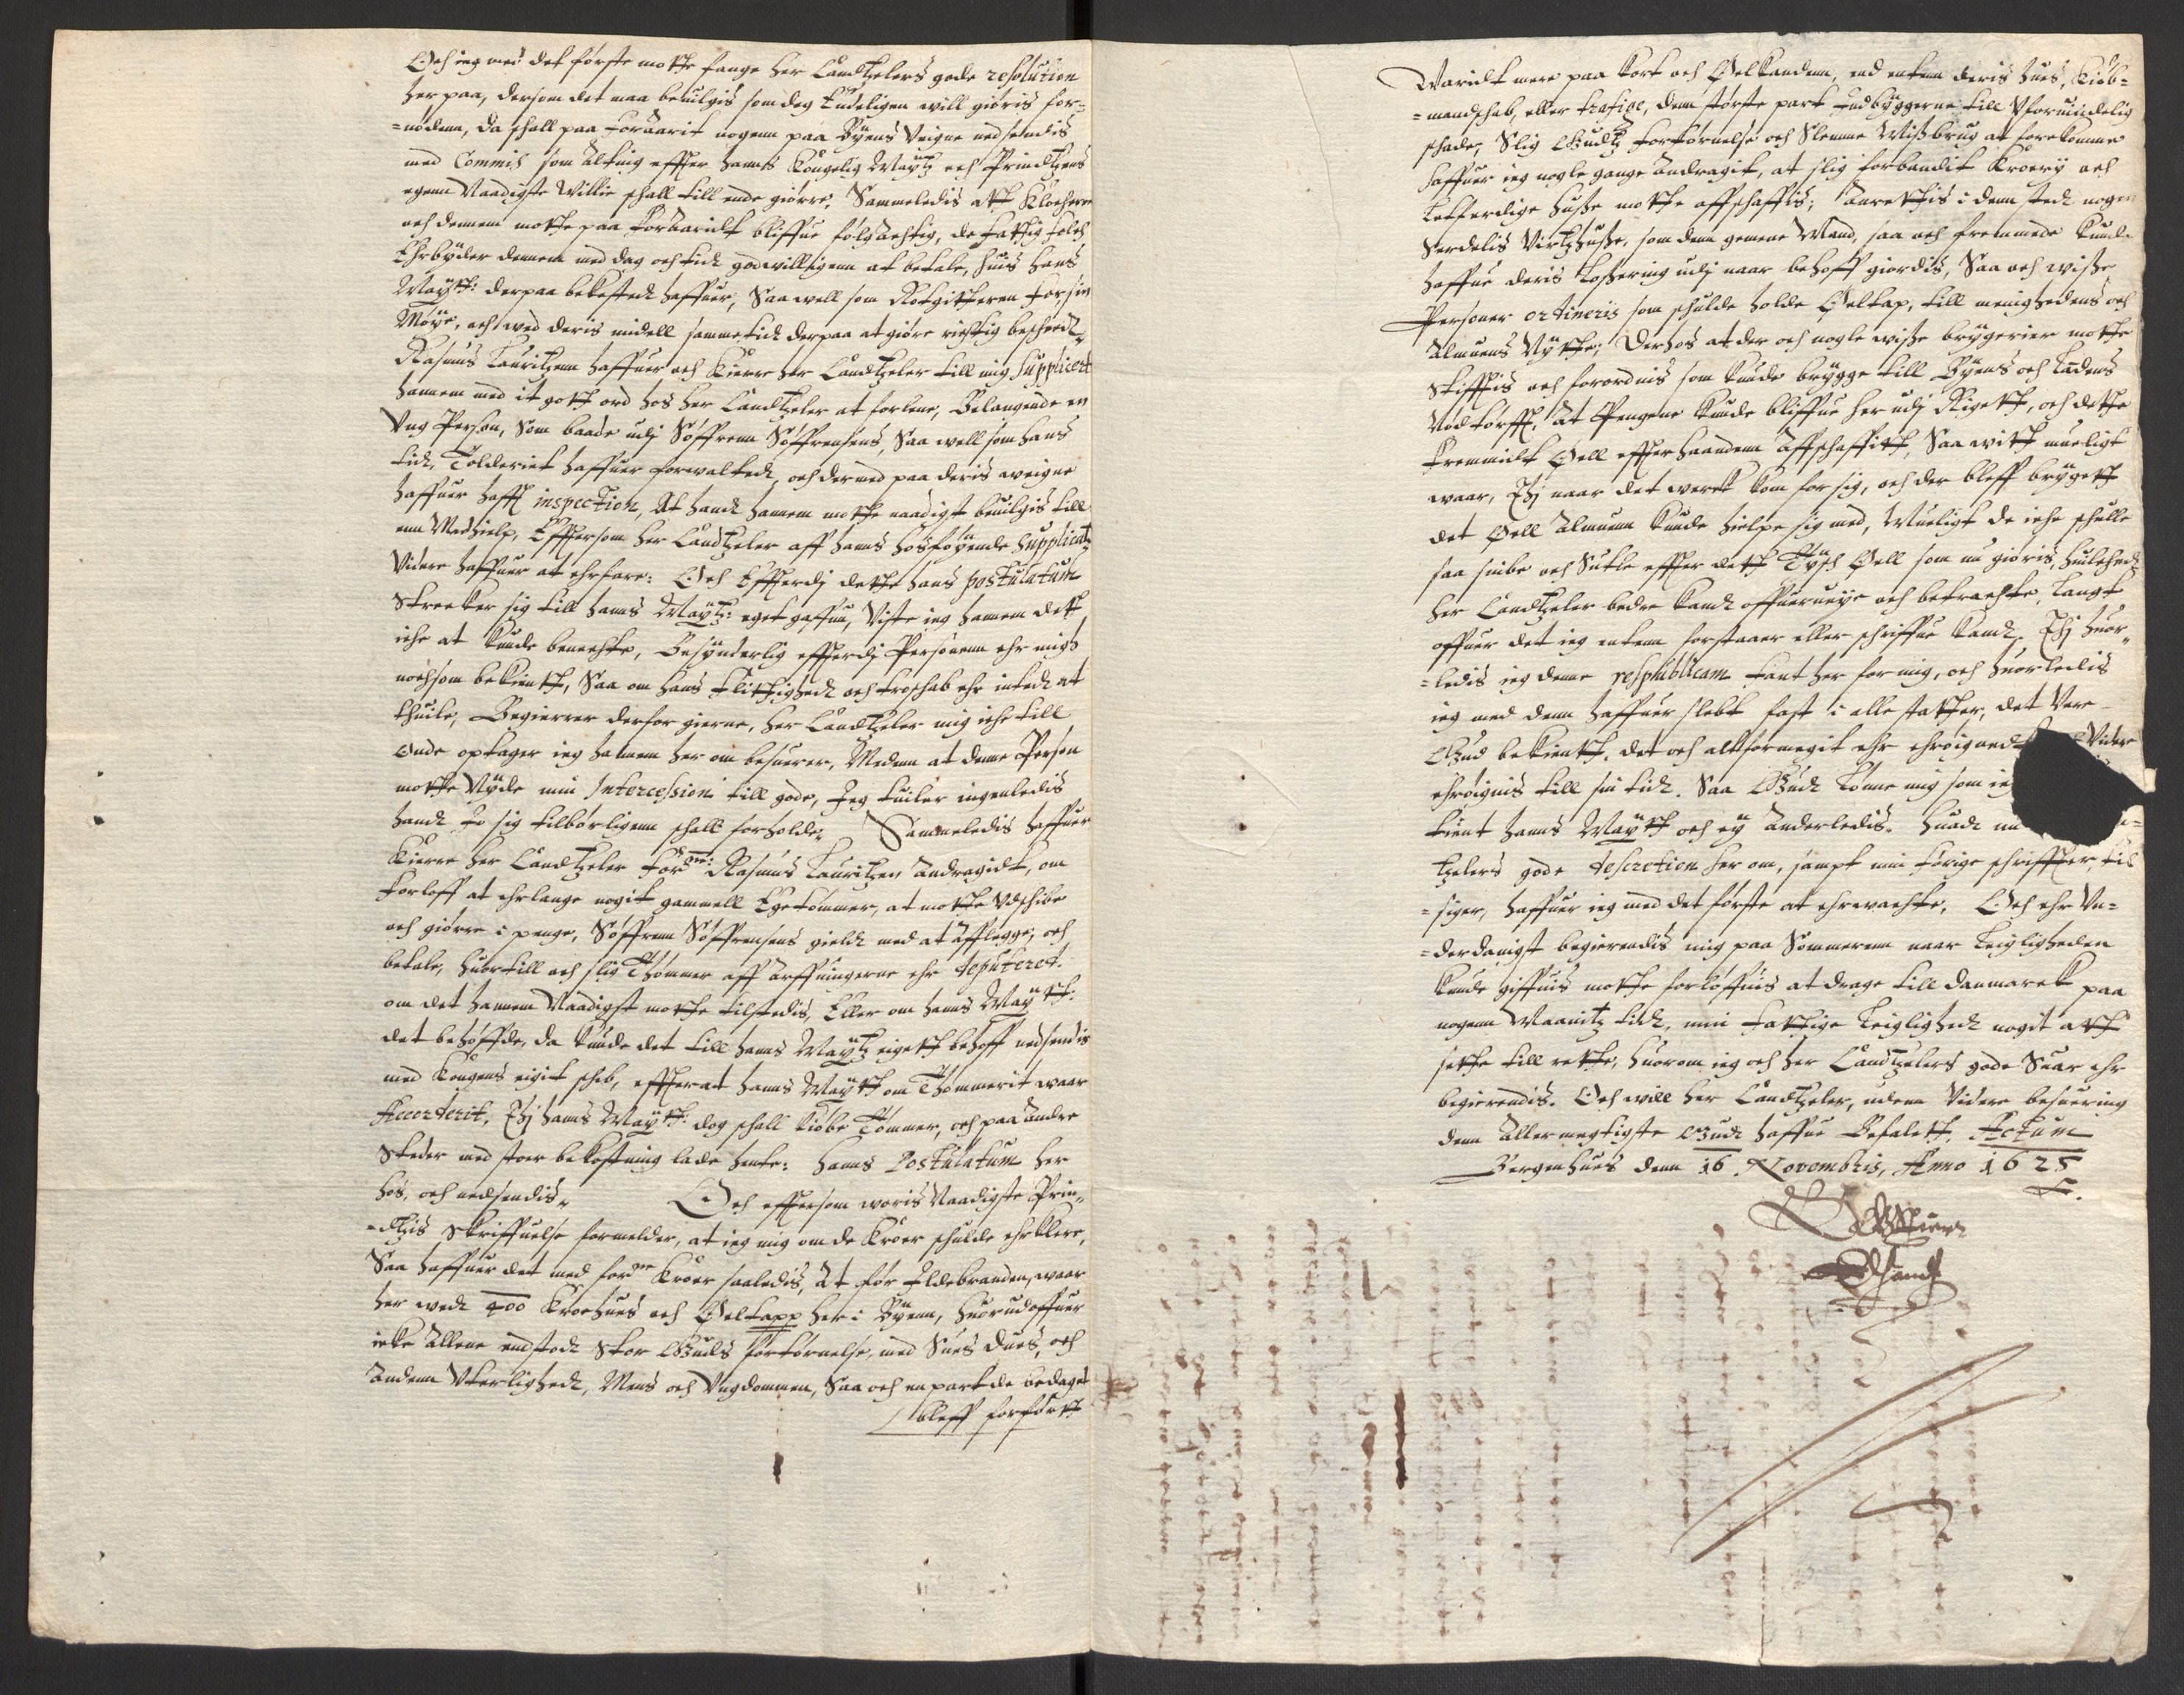 Och ieg med det første motte fange her Candtzelers gode resolution
her paa, dersom det maa beuilgis som dog Endeligen will giöris for¬
=nödenn, da schall paa Foraarit nogenn paa Byens Veigne nedsendis
med Commis som Alting effter hanns Kongelig Maytz och Prindtzens
egenn Naadigste Willie schall till ende giörre. Sammeledis att Klocherne
och dennem motte paa Foraaridt bliffue følgachtig, de fattig folch
Ehrbyder dennem med dag och tid godwilligenn at betale, huis hans
Maytt: derpaa bekosted haffuer, Saa well som Rotgitteren for sin
Møye, och wed deris midell sammetid derpaa at giöre richtig bescheed.
Rasmus Lauritzenn haffuer och Kierre her Candtzeler till mig Suppliceret
hannem med it gott ord hos her Candtzeler at forlene, Belangende en
Vng Person, Som baade udj Søffrenn Søffrensens, Saa well som hans
tid, Tolderiet haffuer forwalted, och dermed paa deris weigne
haffuer hafft inspection, At hand hannem motte naadigst beuilgis till
enn Medhielp, Effttersom her Candtzeler aff hanns hosføyende Supplicatz
Videre haffuer at ehrfare: Och Efftterdj dette hans postulatum
Strecker sig till hanns Maytz: eget gaffnn, Viste ieg hannem dett
iche at kunde benechte, Besynderlig effterdj Personenn ehr migh
nochsom bekientt, Saa om hans flittighed och troschab ehr inted at
thuile, Begierrer derfor gierne, her Candtzeler mig iche till
Onde optager ieg hannem her om besuerer, Medenn at denne Person
motte Nyde min Intercession till gode, Jeg tuiler ingenledis
hand Jo sig tilbørligenn schall forholde. Sammeledis haffuer
Kierre her Candtzeler fornne: Rasmus Lauritzen Andragidt, om
forloff at ehrlange nogit gammell Egetømmer, at motte Vdschibe
och giörre i penge, Søffrenn Søffrensens gield med at Afflegge, och
betale, huortill och slig Thømmer aff Arffuingerne ehr deputeret.
om det hannem Naadigst motte tilstedis, Eller om hanns Maytt:
det behøffde, da kunde det till hanns Maytz eigett behoff nedsendis
med Kongens eigit schib, effterat hanns Maytt om Thømmerit waar
Accorderit, Thj hanns Maytt: dog schall kiöbe Tømmer, och paa Andre
Steder med stoer bekostning lade hente: hanns Postulatum her
hos, och nedsendis. Och effttersom woris Naadigste Prin¬
=dtzis Skriffuelse formelder, at ieg mig om de Kroer schulde ehrklere,
Saa haffuer det med fornne Kroer saaledis, At for Ildebranden, waar
her wed 400 Kroehues och Øeltapp her i Byenn, huorudoffuer
icke Allene endstod Stor Guds fortørnelse, med Sues dues, och
Andenn Vterlighed, Mens och Vngdommen, Saa och en part de bedaget
bleff forførtt

Waridt mere paa Kort och Ølkandenn, end enten deris hues, Kiöb¬
=mandschab, eller trafiqe, denn største part Indbyggerne till Vformindelig
schade, Slig Gudtz fortørnelse och Slemme Missbrug at forekomme
haffuer ieg nogle gange Andragit, at slig forbandit Kroery och
Letferdige husse motte affschaffis; Anrettis i denn sted nogen
Serdelis Virtzhusse, som denn gemene Mand, saa och fremmede kunde
haffue deris Lossering udj naar behoff giordis, Saa och wisse
Personer ortineris som schulde holde Øeltap, till menighedens och
Almuens Nytte; Derhos at der och nogle wisse bryggerier motte
Stifftis och forordnis som kunde brygge till Byens och Ladens
Nødtørfft, At Pengene kunde bliffue her udj Rigett, och dette
fremmidt Øell effter haanden Affschaffitt, Saa witt mueligt
waar, Thj naar det werck kom for sig, och der bleff bryggett
det Øell Almuenn kunde hielpe sig med, Mueligt de iche schulle
saa suibe och Sucke effter dett Tysch Øell som nu giöris, huilched
her Candtzeler bedre kand offuerueye och betrachte, Langt
offuer det ieg entenn forstaaer eller schriffue kand. Thj huor¬
=ledis ieg denne respublicam fant her for mig, och huorledis
ieg med denn haffuer slebt fast i alle statter, det Vere
Gud bekientt, det och altformegit ehr ehröigned Videre
ehröignis till sin tid. Saa Gud Lønne mig som ieg
tient hanns Maytt och ey Anderledis. huad
tzelers gode descretion her om, sampt min forige schriffter, til
=siger, haffuer ieg med det første at ehrwachte. Och ehr Vn¬
=derdanigst begierendis mig paa Sommerenn naar Leigligheden
kunde giffuis motte forløffuis at drage till danmarck paa
nogenn Maanitz tid, min fattige Leiglighed nogit att
sette till rette, huorom ieg och her Candtzelers gode Suar ehr
begierendis. Och will her Candtzeler, udenn Videre besuering
denn Allermegtigste Gud haffue Befalett. Actum
Bergenhues denn 16. Novembris, Anno 1625
Ehand